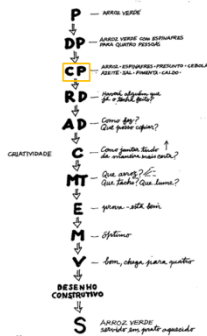 P — ARROZ VERDE
DP — ARROZ VERDE COM ESPINAFRES
PARA QUATRO PESSOAS
CP — ARROZ - ESPINAFRES - PRESUNTO - CEBOLA
AZEITE - SAL - PIMENTA - CALDO -
RD — Haverá alguém que
já o tenha feito?
AD — Como fez?
Que posso copiar?
CRIATIVIDADE
C — Como juntar tudo
da maneira mais certa?
MT — Que arroz?
Que tacho? Que lume?
E — prova - está bom
M — óptimo
V — bom, chega para quatro
DESENHO
CONSTRUTIVO
S ARROZ VERDE
servido em prato aquecido